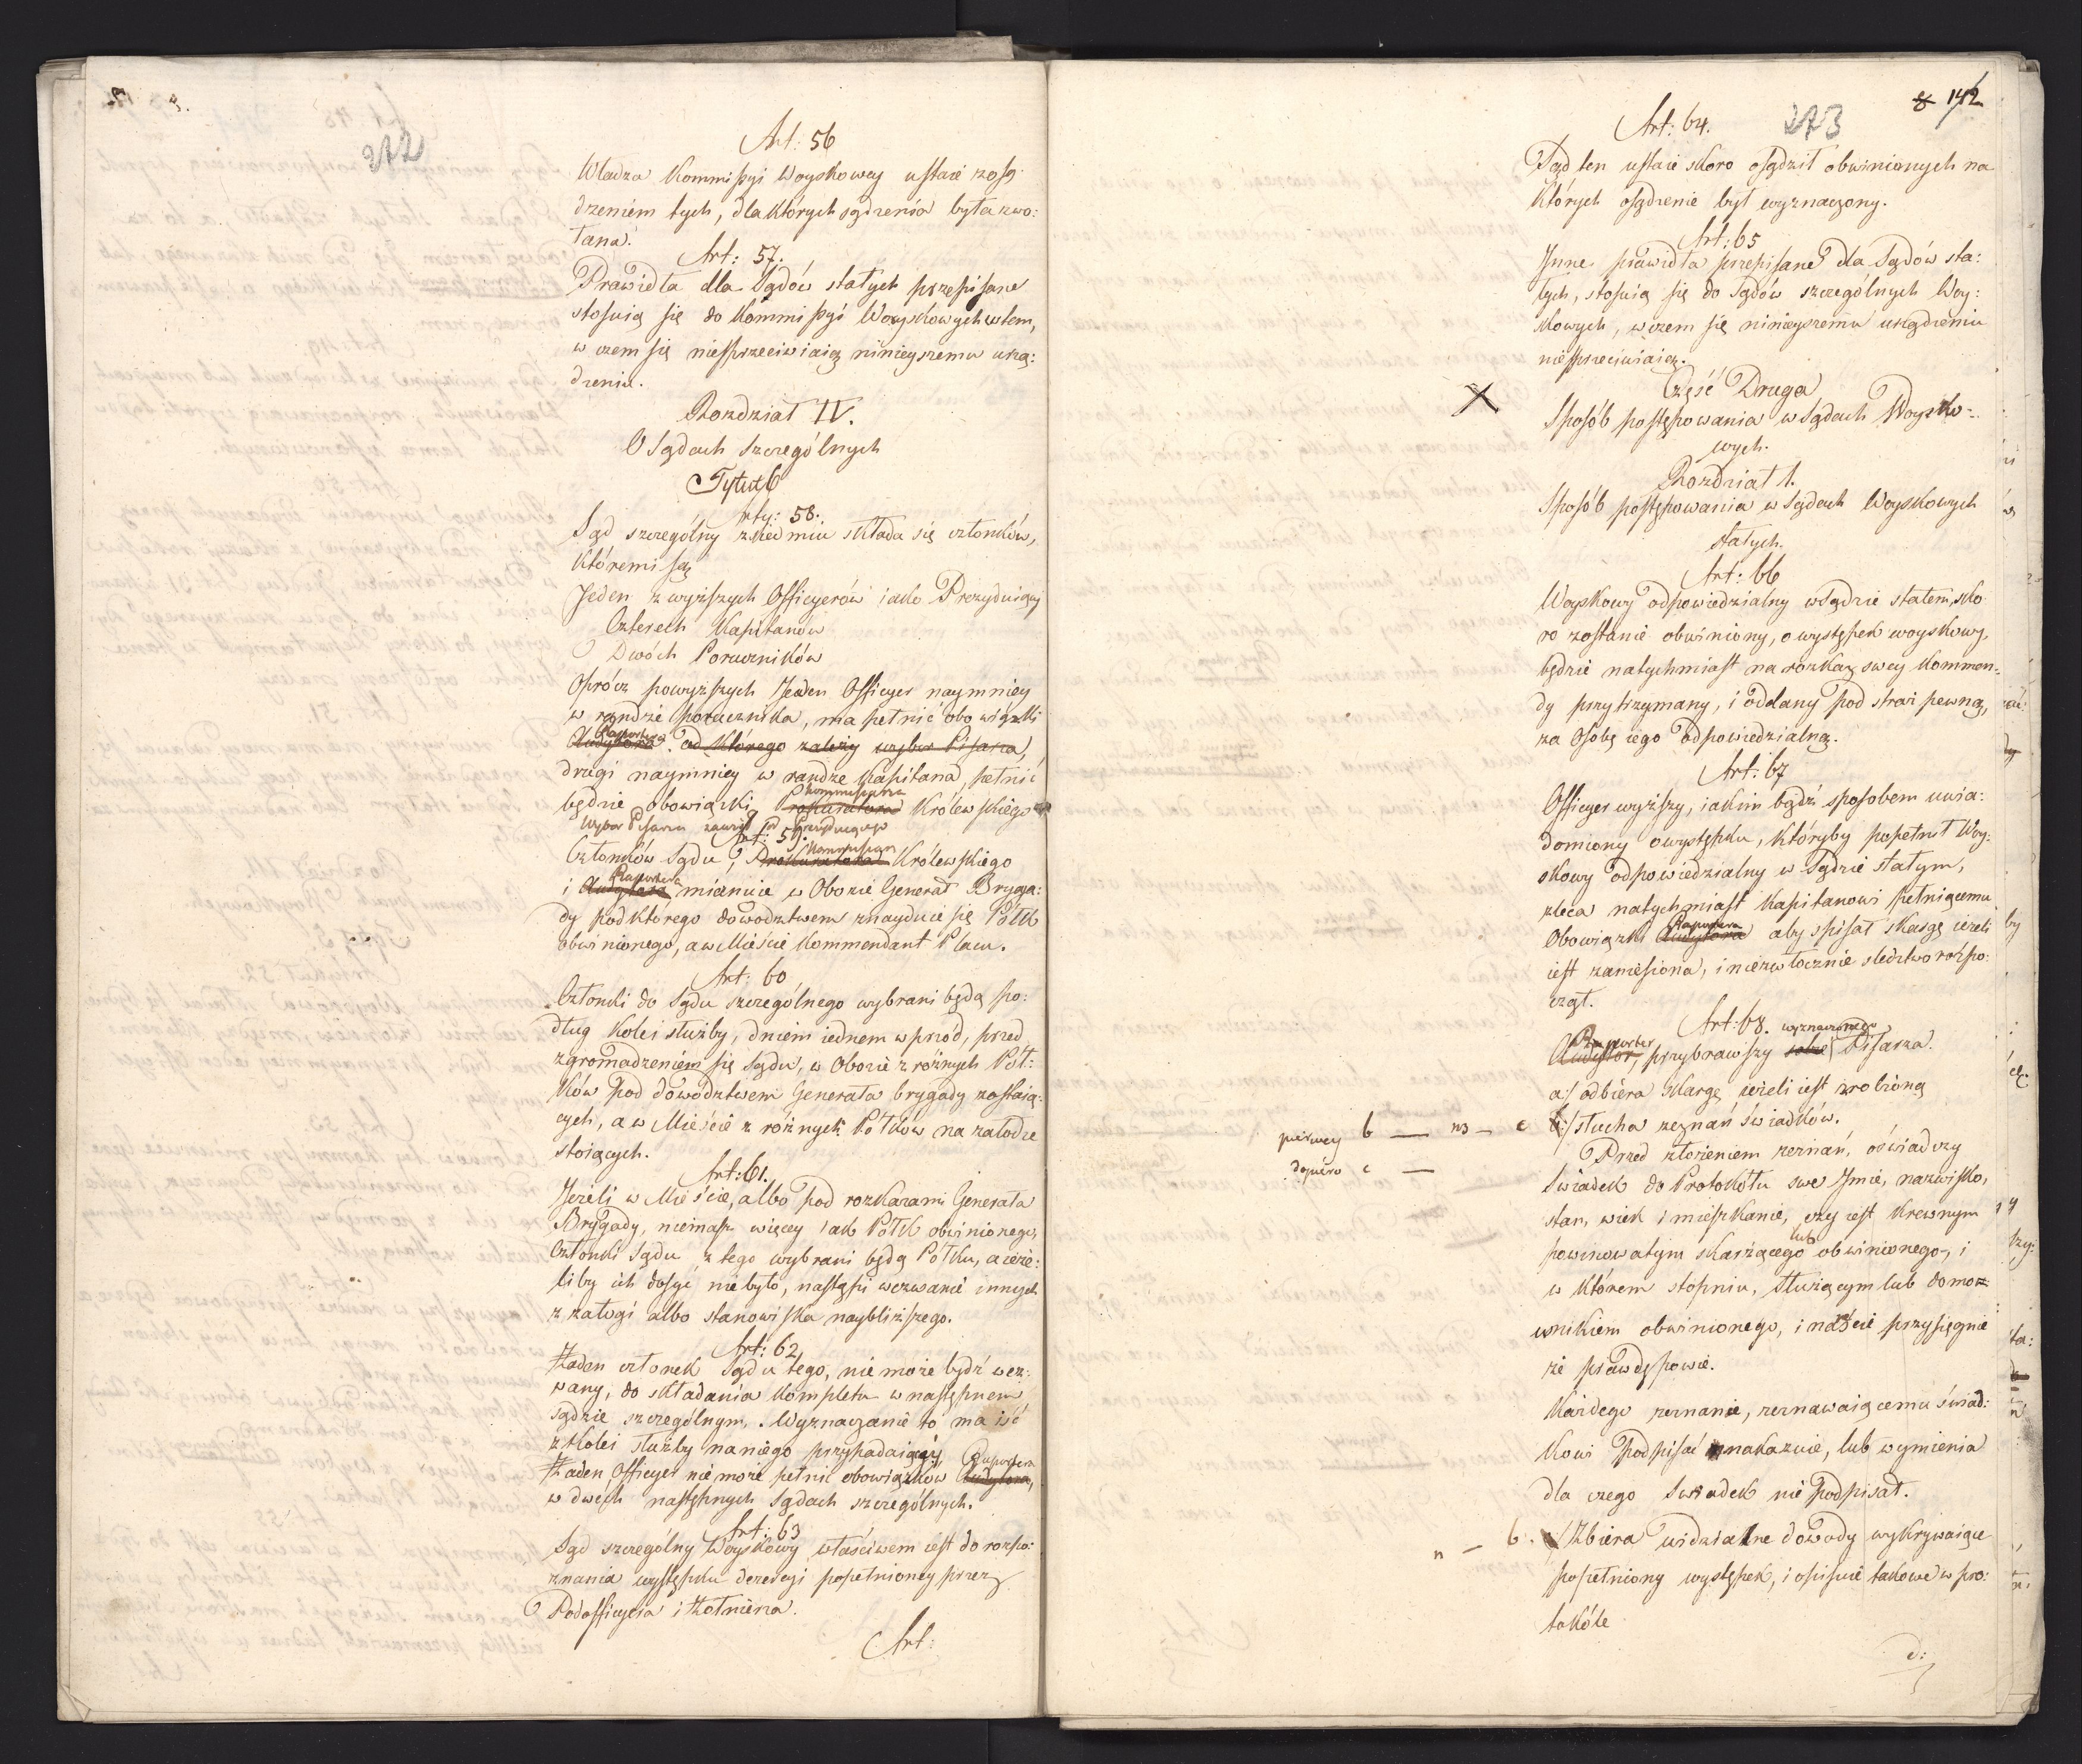 272
Art: 56
Władza Kommissyi Woyskowey ustaie zosą
dzeniem tych, dla których sądzenia była zwo:
łana.
Art: 57.
Prawidła dla Sądów stałych przepisane
stosuią się do Kommissyi Woyskowych w tem,
w czem się niesprzeciwiaią ninieyszemu urzą:
dzeniu.
Rozdział IV.
O Sądach Szczególnych
Tytuł 6
Arty: 58.
Sąd szczególny z siedmiu składa się członków,
któremi są
Jeden z wyższych Officyerów iako Prezyduiący
Czterech Kapitanów
Dwóch Poruczników
Oprócz powyższych Jeden Officyer naymniey
w randze porucznika, ma pełnić obowiązki
Raportera
Audytora. od którego zależy wybór Pisarza,
drugi naymniey w randze Kapitana, pełnić
kommissarza
będzie obowiązki Prokuratora Królewskiego
Wybór Pisarza zawisł od Prezyduiącego
Art: 59.
Kommissarza
Członków Sądu, Prokuratora Królewskiego
Raportera
i Audytora mianuie w Obozie Generał Bryga:
dy pod którego dowództwem znayduie się Półk
obwinionego, a w Mieście Kommendant Placu.
Art: 60
Członki do Sądu szczególnego wybrani będą po:
dług kolei służby, dniem iednem wprzód, przed
zgromadzeniem się Sądu, w Obozie z różnych Pół:
ków pod dowództwem Generała brygady zostaią:
cych, a w Mieście z różnych Półków na załodze
stoiących.
Art: 61.
Jeżeli w Mieście, albo pod rozkazami Generała
Brygady, niemasz więcey iak Półk obwinionego,
Członki Sądu z tego wybrani będą Półku, a ieże:
liby ich dosyć nie było, nastąpi wezwanie innych
z załogi albo stanowiska naybliższego.
Art: 62
Żaden członek Sądu tego, nie może bydź wez:
wany, do składania kompletu w następnem
sądzie szczególnym. Wyznaczanie to ma iść
z kolei służby na niego przypadaiącéy
Raportera
Żaden Officyer nie może pełnić obowiązków Audytora,
w dwóch następnych Sądach szczególnych.
Art: 63
Sąd szczególny Woyskowy właściwem iest do rozpo:
znania występku dezercyi popełnioney przez
Podofficyera i Żołnierza.
Art:
8 142
273
Art: 64.
Sąd ten ustaie skoro osądził obwinionych na
których osądzenie był wyznaczony.
Art: 65
Inne prawidła przepisane dla Sądów sta:
łych, stosuią się do Sądów szczególnych Woy:
skowych, w czem się ninieyszemu urządzeniu
niesprzeciwiaią.
X
Część Druga
Sposób postępowania w Sądach Woysko:
wych.
Rozdział 1.
Sposób postępowania w Sądach Woyskowych
stałych.
Art: 66
Woyskowy odpowiedzialny w Sądzie stałem, sko
ro zostanie obwiniony, o występek woyskowy,
będzie natychmiast na rozkaz swey Kommen:
dy przytrzymany, i oddany pod straż pewną,
za Osobę iego odpowiedzialną.
Art: 67
Officyer wyższy, iakim bądź sposobem uwia:
domiony o występku, któryby popełnił Woy:
skowy odpowiedzialny w Sądzie stałym,
zleca natychmiast Kapitanowi pełniącemu
Raportera
Obowiązki Audytora aby spisał skargę ieżeli
iest zaniesiona, i niezwłocznie sledztwo rozpo:
czął.
Art: 68.
Raporter wyznaczonego
Audytor, przybrawszy sobie Pisarza.
a/ odbiera skargę ieżeli iest zrobioną
pierwey b — n3 — c b/ słucha zeznań świadków.
dopiero c —
Przed złożeniem zeznań, oświadczy
Świadek do Protokółu swe Imie, nazwisko,
stan, wiek i mieszkanie, czy iest krewnym
lub
powinowatym skarżącego obwinionego, i
w którem stopniu, służącym lub domo:
wnikiem obwinionego, i naście przysięgnie
że prawdę powie.
Każdego zeznanie, zeznawaiącemu świad:
kowi podpisać nakazuie, lub wymienia
dla czego Świadek nie podpisał.
n — b. / Zbiera widzialne dowody wykrywaiące
popełniony występek, i opisuie takowe w pro:
tokóle
d: